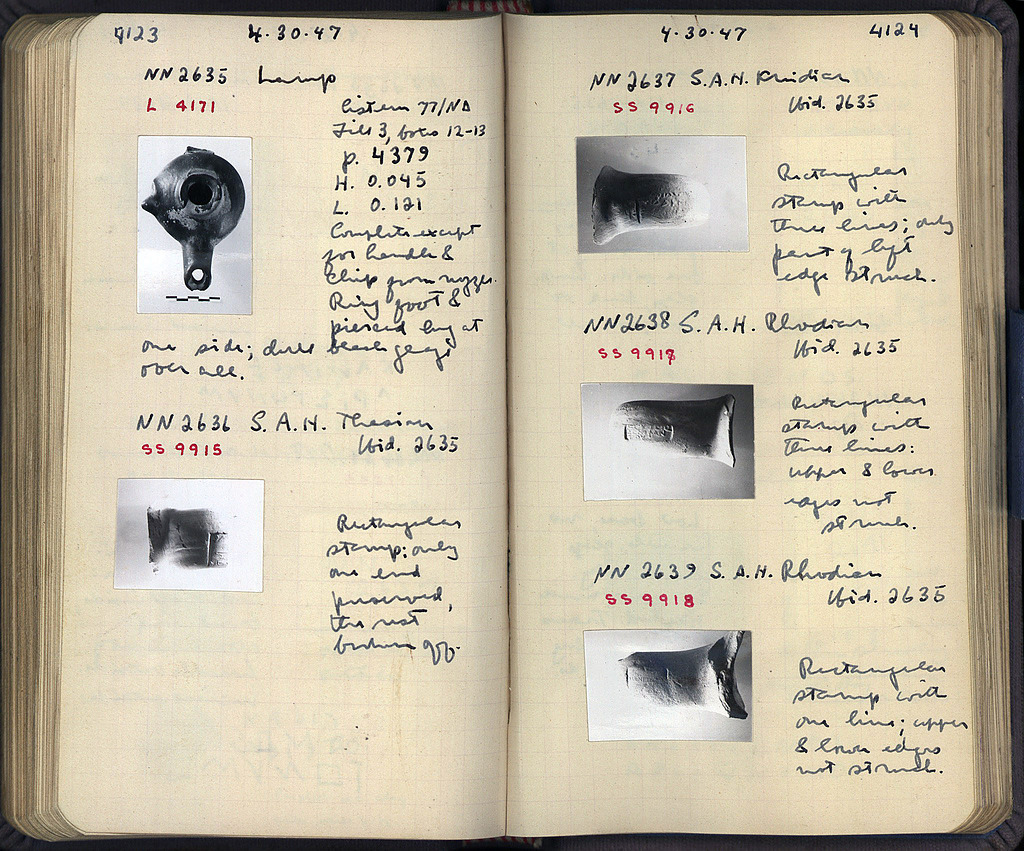 4123 4·30·47
NN2635 Lamp
L 4171
Cistern 77/NΔ
Fill 3, botes 12-13
p. 4379
H. 0.045
L. 0.121
Complete except
for handle &
chip from nozzle.
Ring foot &
pierced lug at
one side; dull black glaze
over all.
NN2636 S.A.H. Thasian
SS 9915 Ibid. 2635
Rectangular
stamp: only
one end
preserved,
the rest
broken off.
4·30·47 4124
NN2637 S.A.H. Knidian
SS 9916 Ibid. 2635
Rectangular
stamp with
three lines; only
part of left
edge struck.
NN2638 S.A.H. Rhodian
SS 9917 Ibid. 2635
Rectangular
stamp with
three lines:
upper & lower
edges not
struck.
NN 2639 S.A.H. Rhodian
SS 9918 Ibid. 2635
Rectangular
stamp with
one line; upper
& lower edges
not struck.